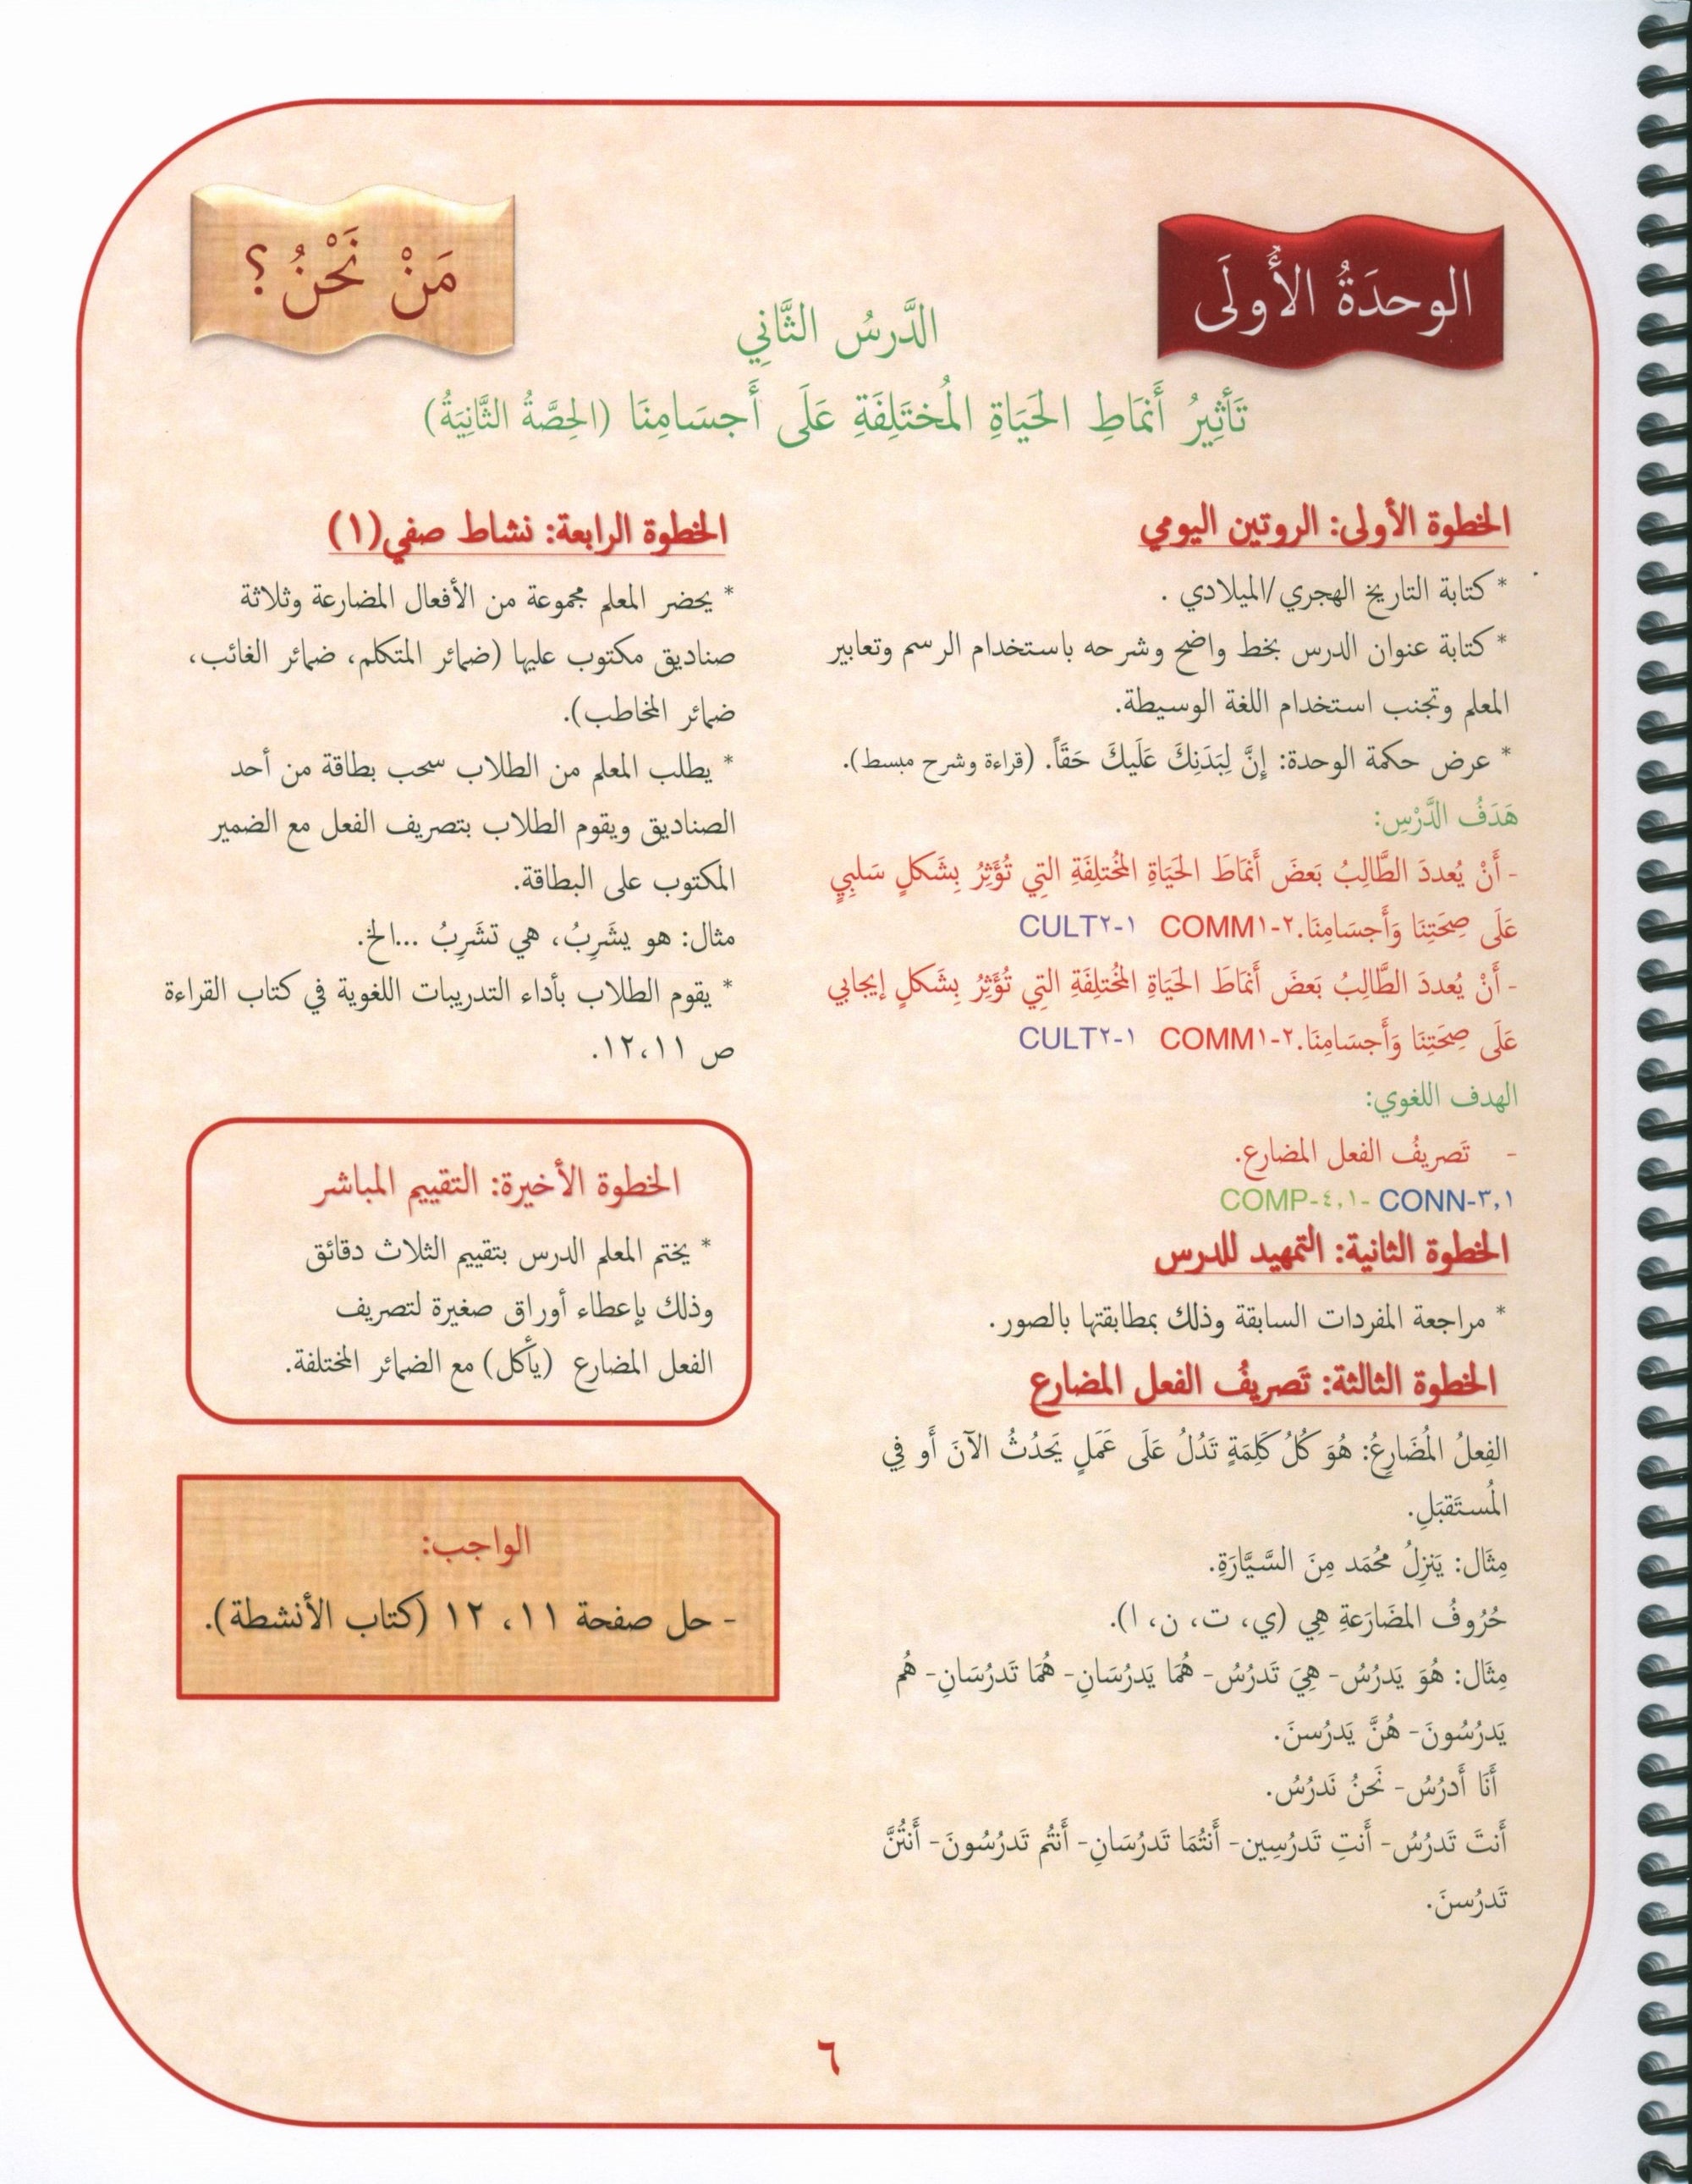 الوحدَةُ الأُولَى
مَنْ نَحْنُ ؟
الدَّرسُ الثَّانِي
تَأثِيرُ أَنمَاطِ الحَيَاةِ المُختَلِفَةِ عَلَى أَجسَامِنَا (الحِصَّةُ الثَّانِيَةُ)
الخطوة الأولى: الروتين اليومي
* كتابة التاريخ الهجري/الميلادي .
* كتابة عنوان الدرس بخط واضح وشرحه باستخدام الرسم وتعابير
المعلم وتجنب استخدام اللغة الوسيطة.
* عرض حكمة الوحدة: إِنَّ لِبَدَنِكَ عَلَيكَ حَقَّاً. (قراءة وشرح مبسط).
هَدَفُ الدَّرْسِ:
- أَنْ يُعددَ الطَّالِبُ بَعضَ أَنمَاطَ الحَيَاةِ المُختلِفَةِ التِي تُؤَثِرُ بِشَكلٍ سَلبِيٍ
عَلَى صِحَتِنَا وَأَجسَامِنَا. COMM١-٢ CULT٢-١
- أَنْ يُعددَ الطَّالِبُ بَعضَ أَنمَاطَ الحَيَاةِ المُختلِفَةِ التِي تُؤَثِرُ بِشَكلٍ إيجابي
عَلَى صِحَتِنَا وَأَجسَامِنَا. COMM١-٢ CULT٢-١
الهدف اللغوي:
- تَصريفُ الفعل المضارع.
COMP-٤,١- CONN-٣,١
الخطوة الثانية: التمهيد للدرس
* مراجعة المفردات السابقة وذلك بمطابقتها بالصور.
الخطوة الثالثة: تَصريفُ الفعل المضارع
الفِعلُ المُضَارِعُ: هُوَ كُلُ كَلِمَةٍ تَدُلُ عَلَى عَمَلٍ يَحدُثُ الآنَ أَو فِي
المُستَقبَلِ.
مِثَال: يَنزِلُ مُحَمَد مِنَ السَّيَّارَةِ.
حُرُوفُ المضَارَعةِ هِي (ي، ت، ن، ا).
مِثَال: هُوَ يَدرُسُ- هِيَ تَدرُسُ- هُمَا يَدرُسَانِ- هُمَا تَدرُسَانِ- هُم
يَدرُسُونَ- هُنَّ يَدرُسنَ.
أَنَا أَدرُسُ- نَحنُ نَدرُسُ.
أَنتَ تَدرُسُ- أَنتِ تَدرُسِين- أَنتُمَا تَدرُسَانِ- أَنتُم تَدرُسُونَ- أَنتُنَّ
تَدرُسنَ.
الخطوة الرابعة: نشاط صفي(١)
* يحضر المعلم مجموعة من الأفعال المضارعة وثلاثة
صناديق مكتوب عليها (ضمائر المتكلم، ضمائر الغائب،
ضمائر المخاطب).
* يطلب المعلم من الطلاب سحب بطاقة من أحد
الصناديق ويقوم الطلاب بتصريف الفعل مع الضمير
المكتوب على البطاقة.
مثال: هو يشَرِبُ، هي تشَرِبُ ...الخ.
* يقوم الطلاب بأداء التدريبات اللغوية في كتاب القراءة
ص ١٢،١١.
الخطوة الأخيرة: التقييم المباشر
* يختم المعلم الدرس بتقييم الثلاث دقائق
وذلك بإعطاء أوراق صغيرة لتصريف
الفعل المضارع (يأكل) مع الضمائر المختلفة.
الواجب:
- حل صفحة ١١، ١٢ (كتاب الأنشطة).
٦